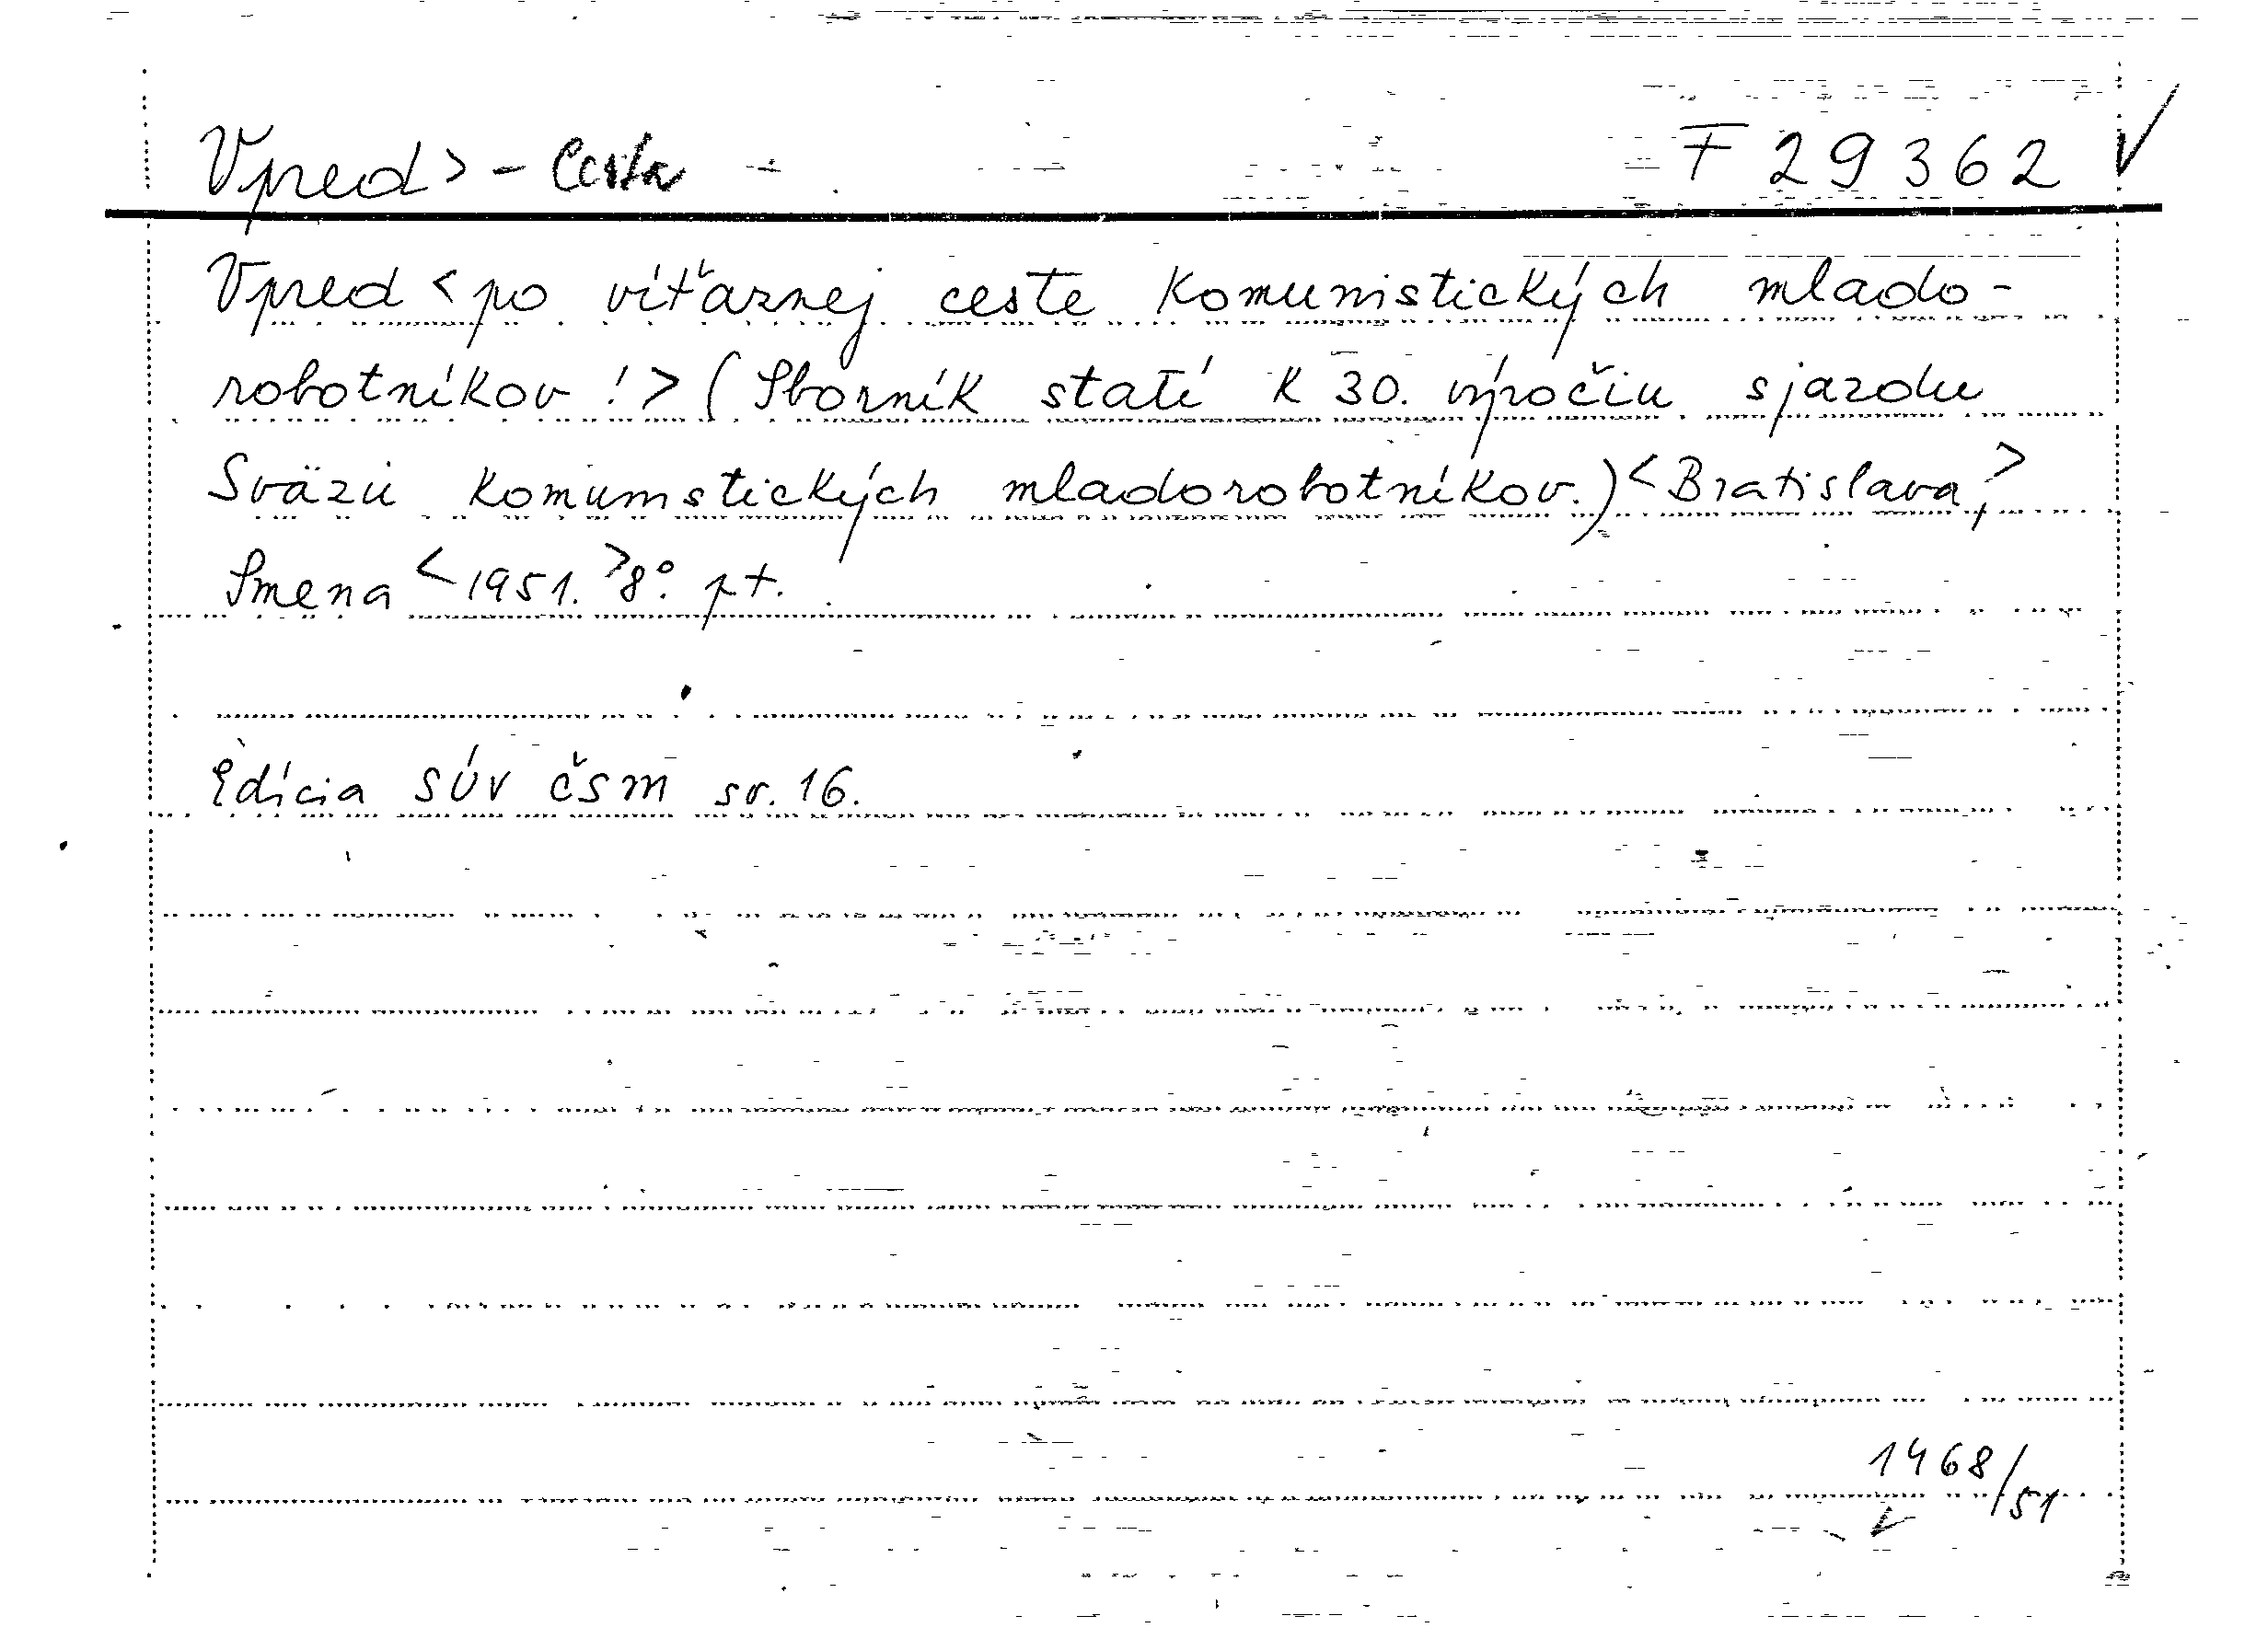 Vpred > - Cesta F 29362 √
Vpred < po víťaznej ceste komunistických mlado-
robotníkov ! > ( Sborník statí k 30. výročiu sjazdu
Sväzu komunistických mladorobotníkov. ) < Bratislava, >
Smena < 1951. > 8°. pt.
Edícia SÚV ČSM sv. 16.
1468/51